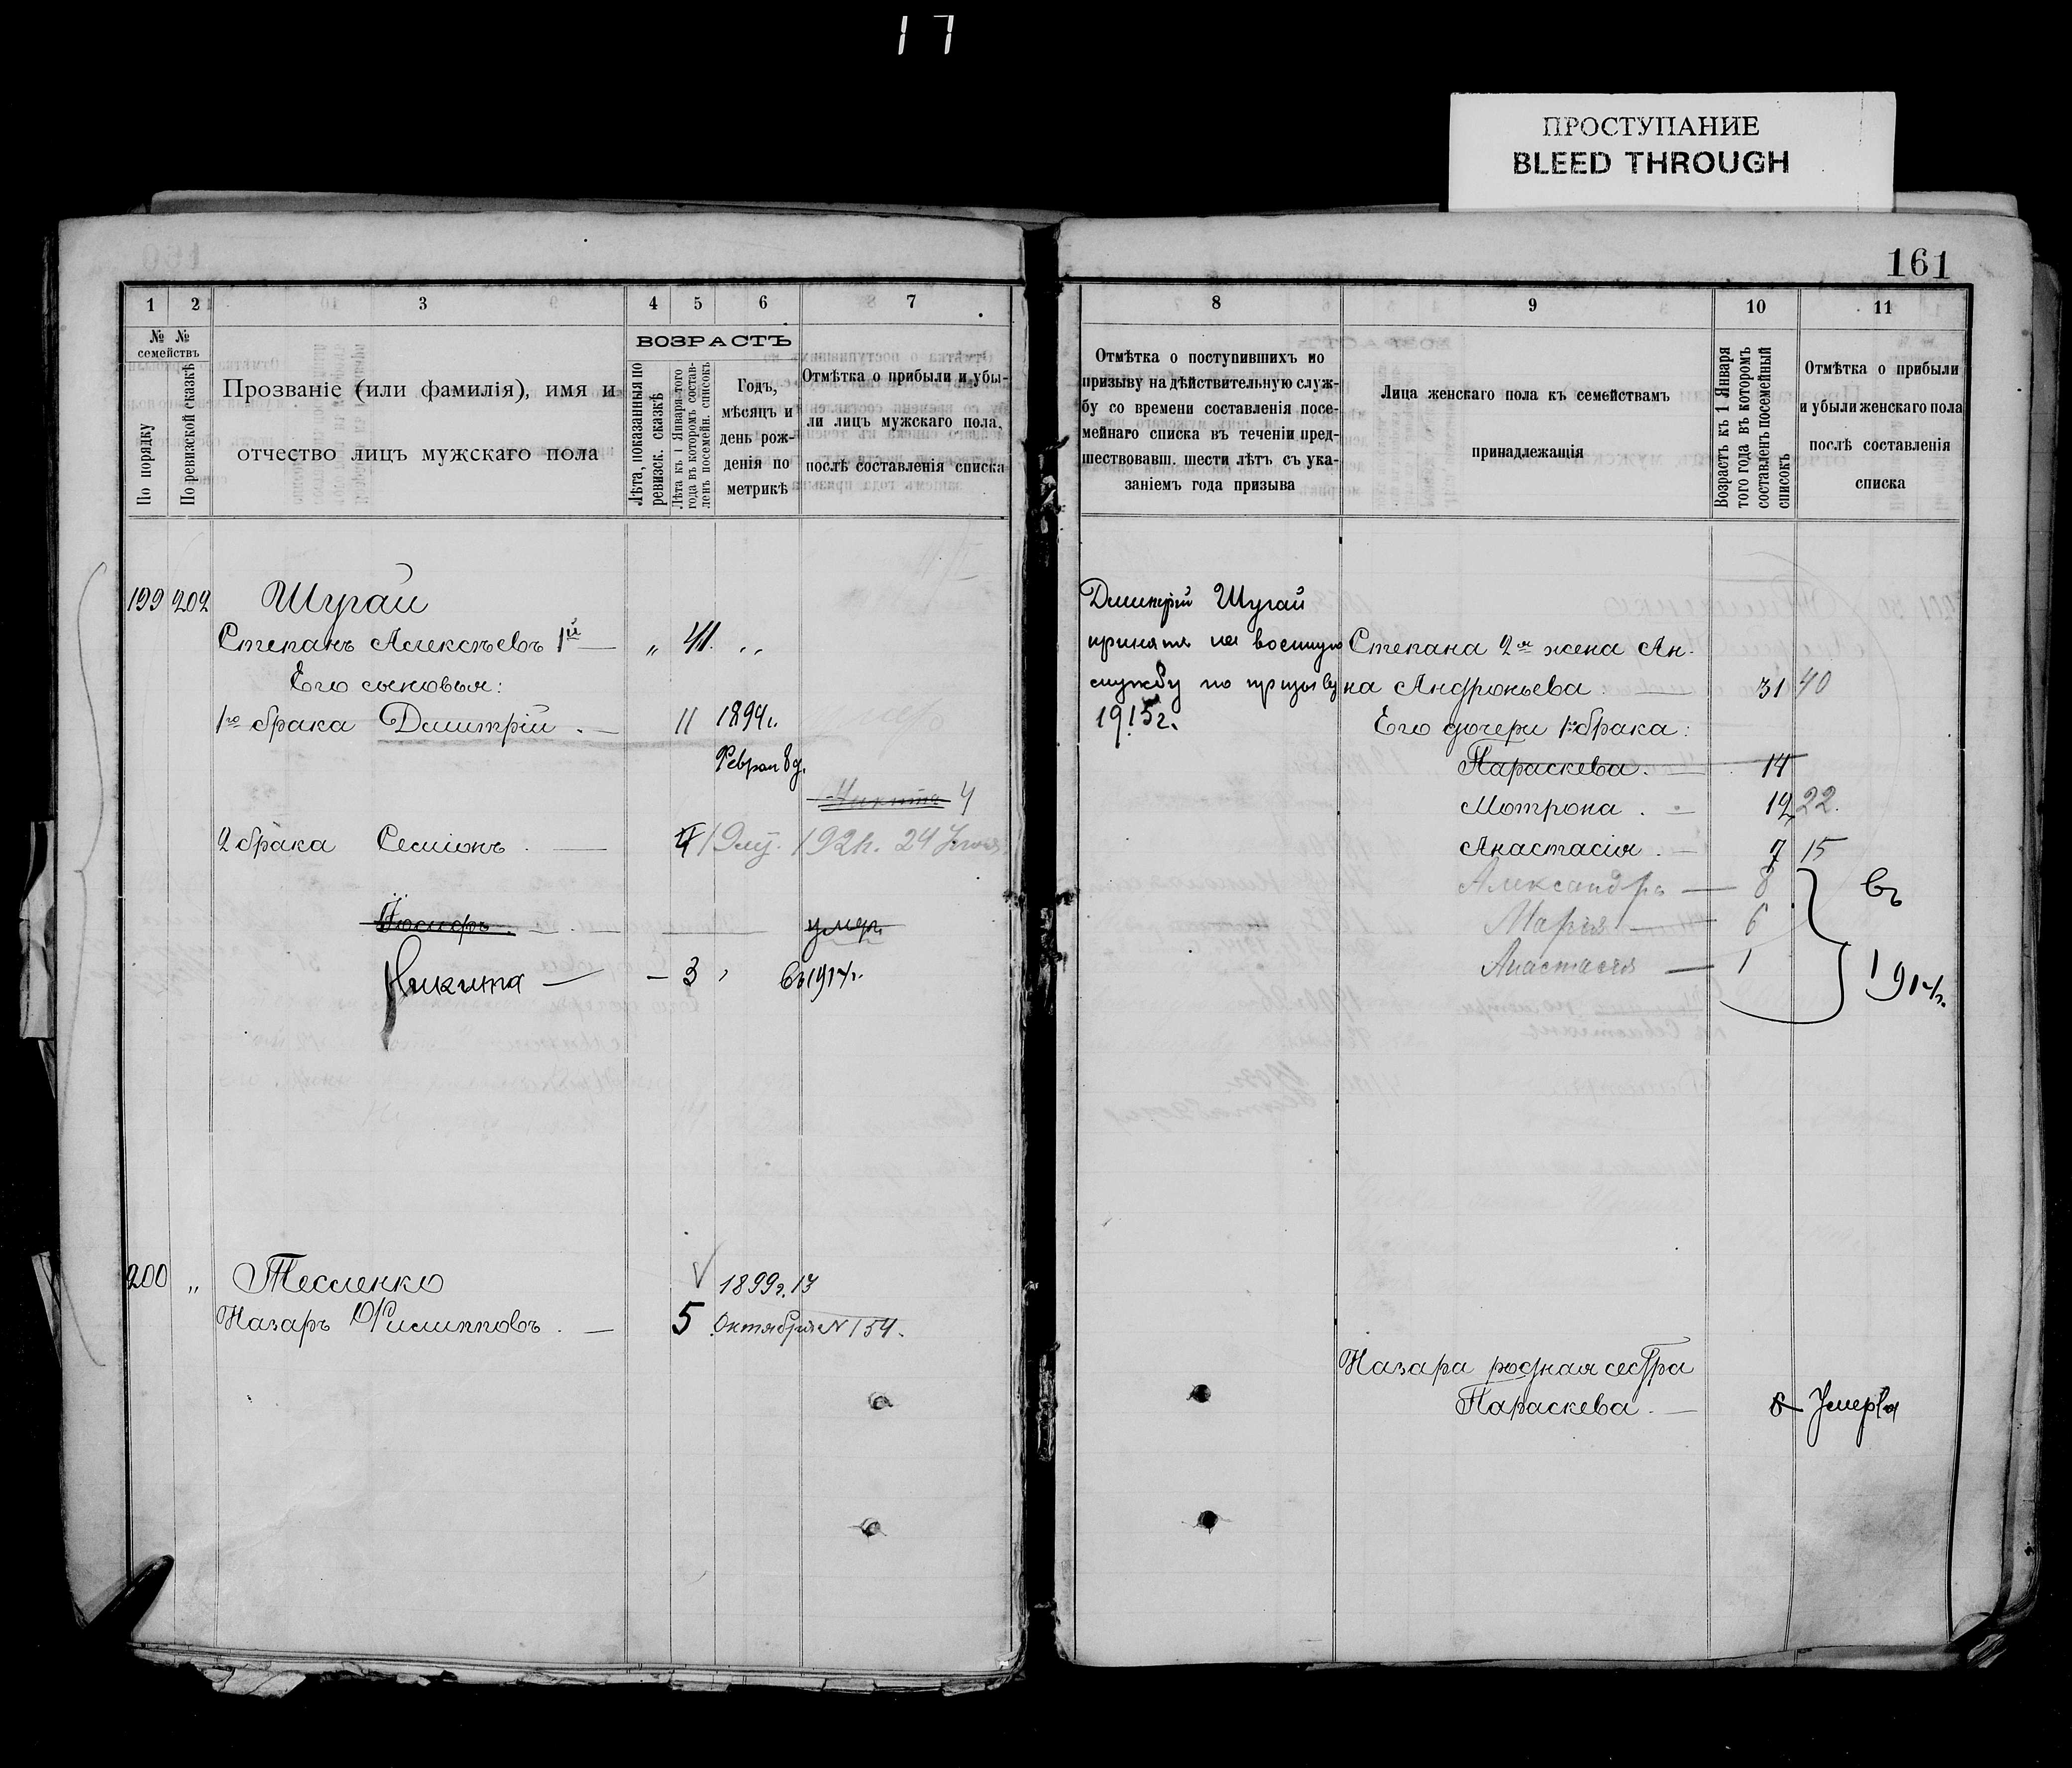 17
ПРОСТУПАНИЕ
BLEED THROUGH
161
1 2 3 4 5 6 7
№ №
семействъ
По порядку
По ревизской сказкѣ
Прозваніе (или фамилія), имя и
отчество лицъ мужскаго пола
ВОЗРАСТЪ
Лѣта, показанныя по
ревизск. сказкѣ
Лѣта къ 1 Января того
года въ которомъ состав-
ленъ посемейн. списокъ
Годъ,
мѣсяцъ и
день рож-
денія по
метрикѣ
Отмѣтка о прибыли и убы-
ли лицъ мужскаго пола,
послѣ составленія списка
199 202 Шугай
Степанъ Алексѣевъ 1й — „ 41. „
Его сыновья:
1го брака Дмитрій . — 11 1894г.
Феврал 8 д.
Никита 4
2 брака Семіонъ . — 4
Іосифъ . — умер.
Никита — — 3 , въ 1914г.
200 „ Тесленко 1899г. 13
Назаръ Филипповъ . — 5 Октября N 154.
8 9 10 11
Отмѣтка о поступившихъ по
призыву на дѣйствительную служ-
бу со времени составленія посе-
мейнаго списка въ теченіи пред-
шествовавш. шести лѣтъ съ ука-
заніемъ года призыва
Лица женскаго пола къ семействамъ
принадлежащія
Возрастъ къ 1 Января
того года въ которомъ
составленъ посемейный
списокъ
Отмѣтка о прибыли
и убыли женскаго пола
послѣ составленія
списка
Дмитрій Шугай
принятъ на военную
службу по призыву
1915г.
Степана 2я жена Ан-
на Андроньева . — 31 40
Его дочери 1го брака:
Параскева . — 14
Мотрона . — 12 22.
Анастасія . — 7 15
Александра — 8 въ
Марья — 6
Анастасія — 1 1914г.
Назара родная сестра
Параскева . — 8 Умерла